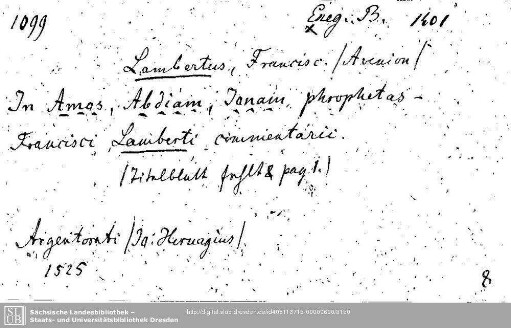 1099
Exeg. B. 1401
Lambertus, Francisc. /Avenion/
In Amos, Abdiam, Jonam, phrophetas –
Francisci Lamberti commentarii
/Titelblatt fehlt & pag 1./
Argentorati /Jo: Hervagius/
1525
8
Sächsische Landesbibliothek –
Staats- und Universitätsbibliothek Dresden